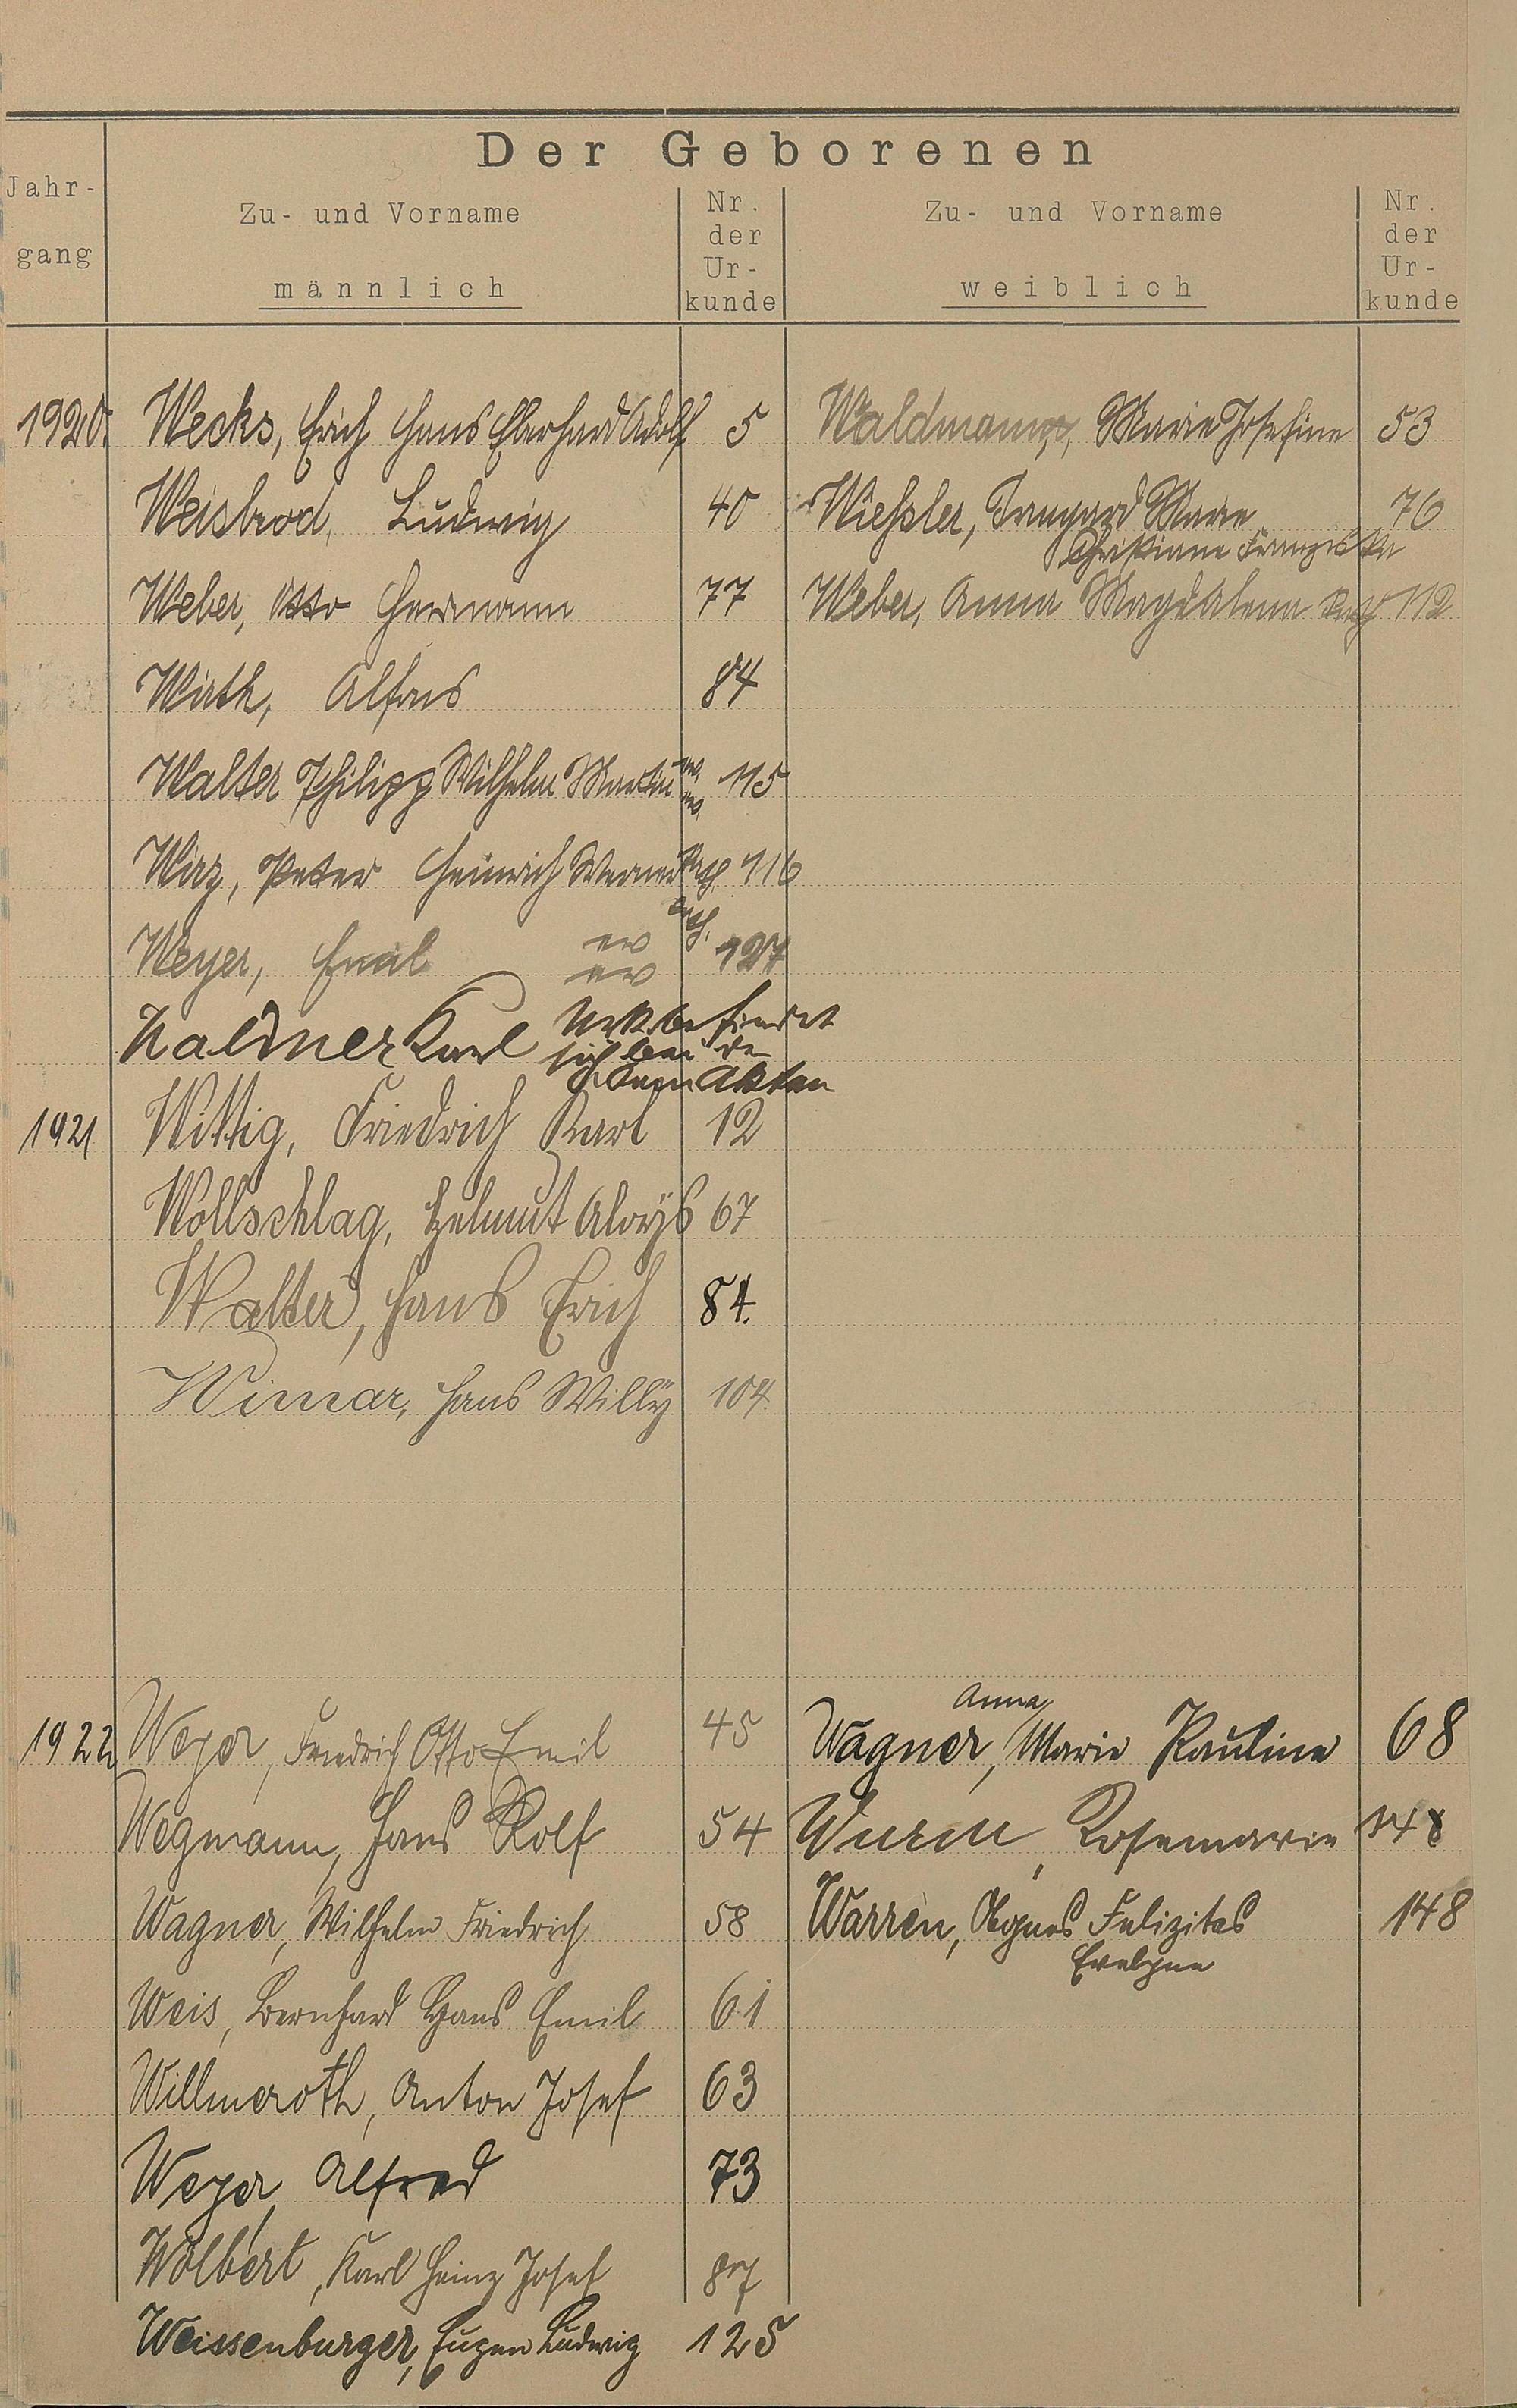 Der Geborenen
Jahr-
gang
Zu- und Vorname
männlich
Nr.
der
Ur-
kunde
Zu- und Vorname
weiblich
Nr.
der
Ur-
kunde
1920. Wecks, Erich Hans Eberhard Adolf 5 Waldmann, Marie Josefine 53
Weisbrod, Ludwig 40 Wiessler, Irmgard Marie 76
Christiane Franziska
Weber, Otto Hermann 77 Weber, Anna Magdalena kath 112
Wirth, Alfons 84
Walter Philipp Wilhelm Martin ev. ev. 115
Wirz, Peter Heinrich Werner kath 116
kath.
Weyer, Emil ev ev 127
Waldner Karl Urk. befindet
sich bei den
Samm Akten
1921 Wittig, Friedrich Karl 12
Wollschlag, Helmut Aloys 67
Walter, Hans Erich 84.
Wimar, Hans Willy 104
Anna
1922 Weyer, Friedrich Otto Emil 45 Wagner, Marie Pauline 68
Wegmann, Hans Rolf 54 Wurm, Rosemarie
Wagner, Wilhelm Friedrich 58 Warren, Agnes Felizitas 148
Evelyne
Weis, Bernhard Hans Emil 61
Willmeroth, Anton Josef 63
Weyer, Alfred 73
Wölbert, Karl Heinz Josef 87
Weissenburger, Eugen Ludwig 125